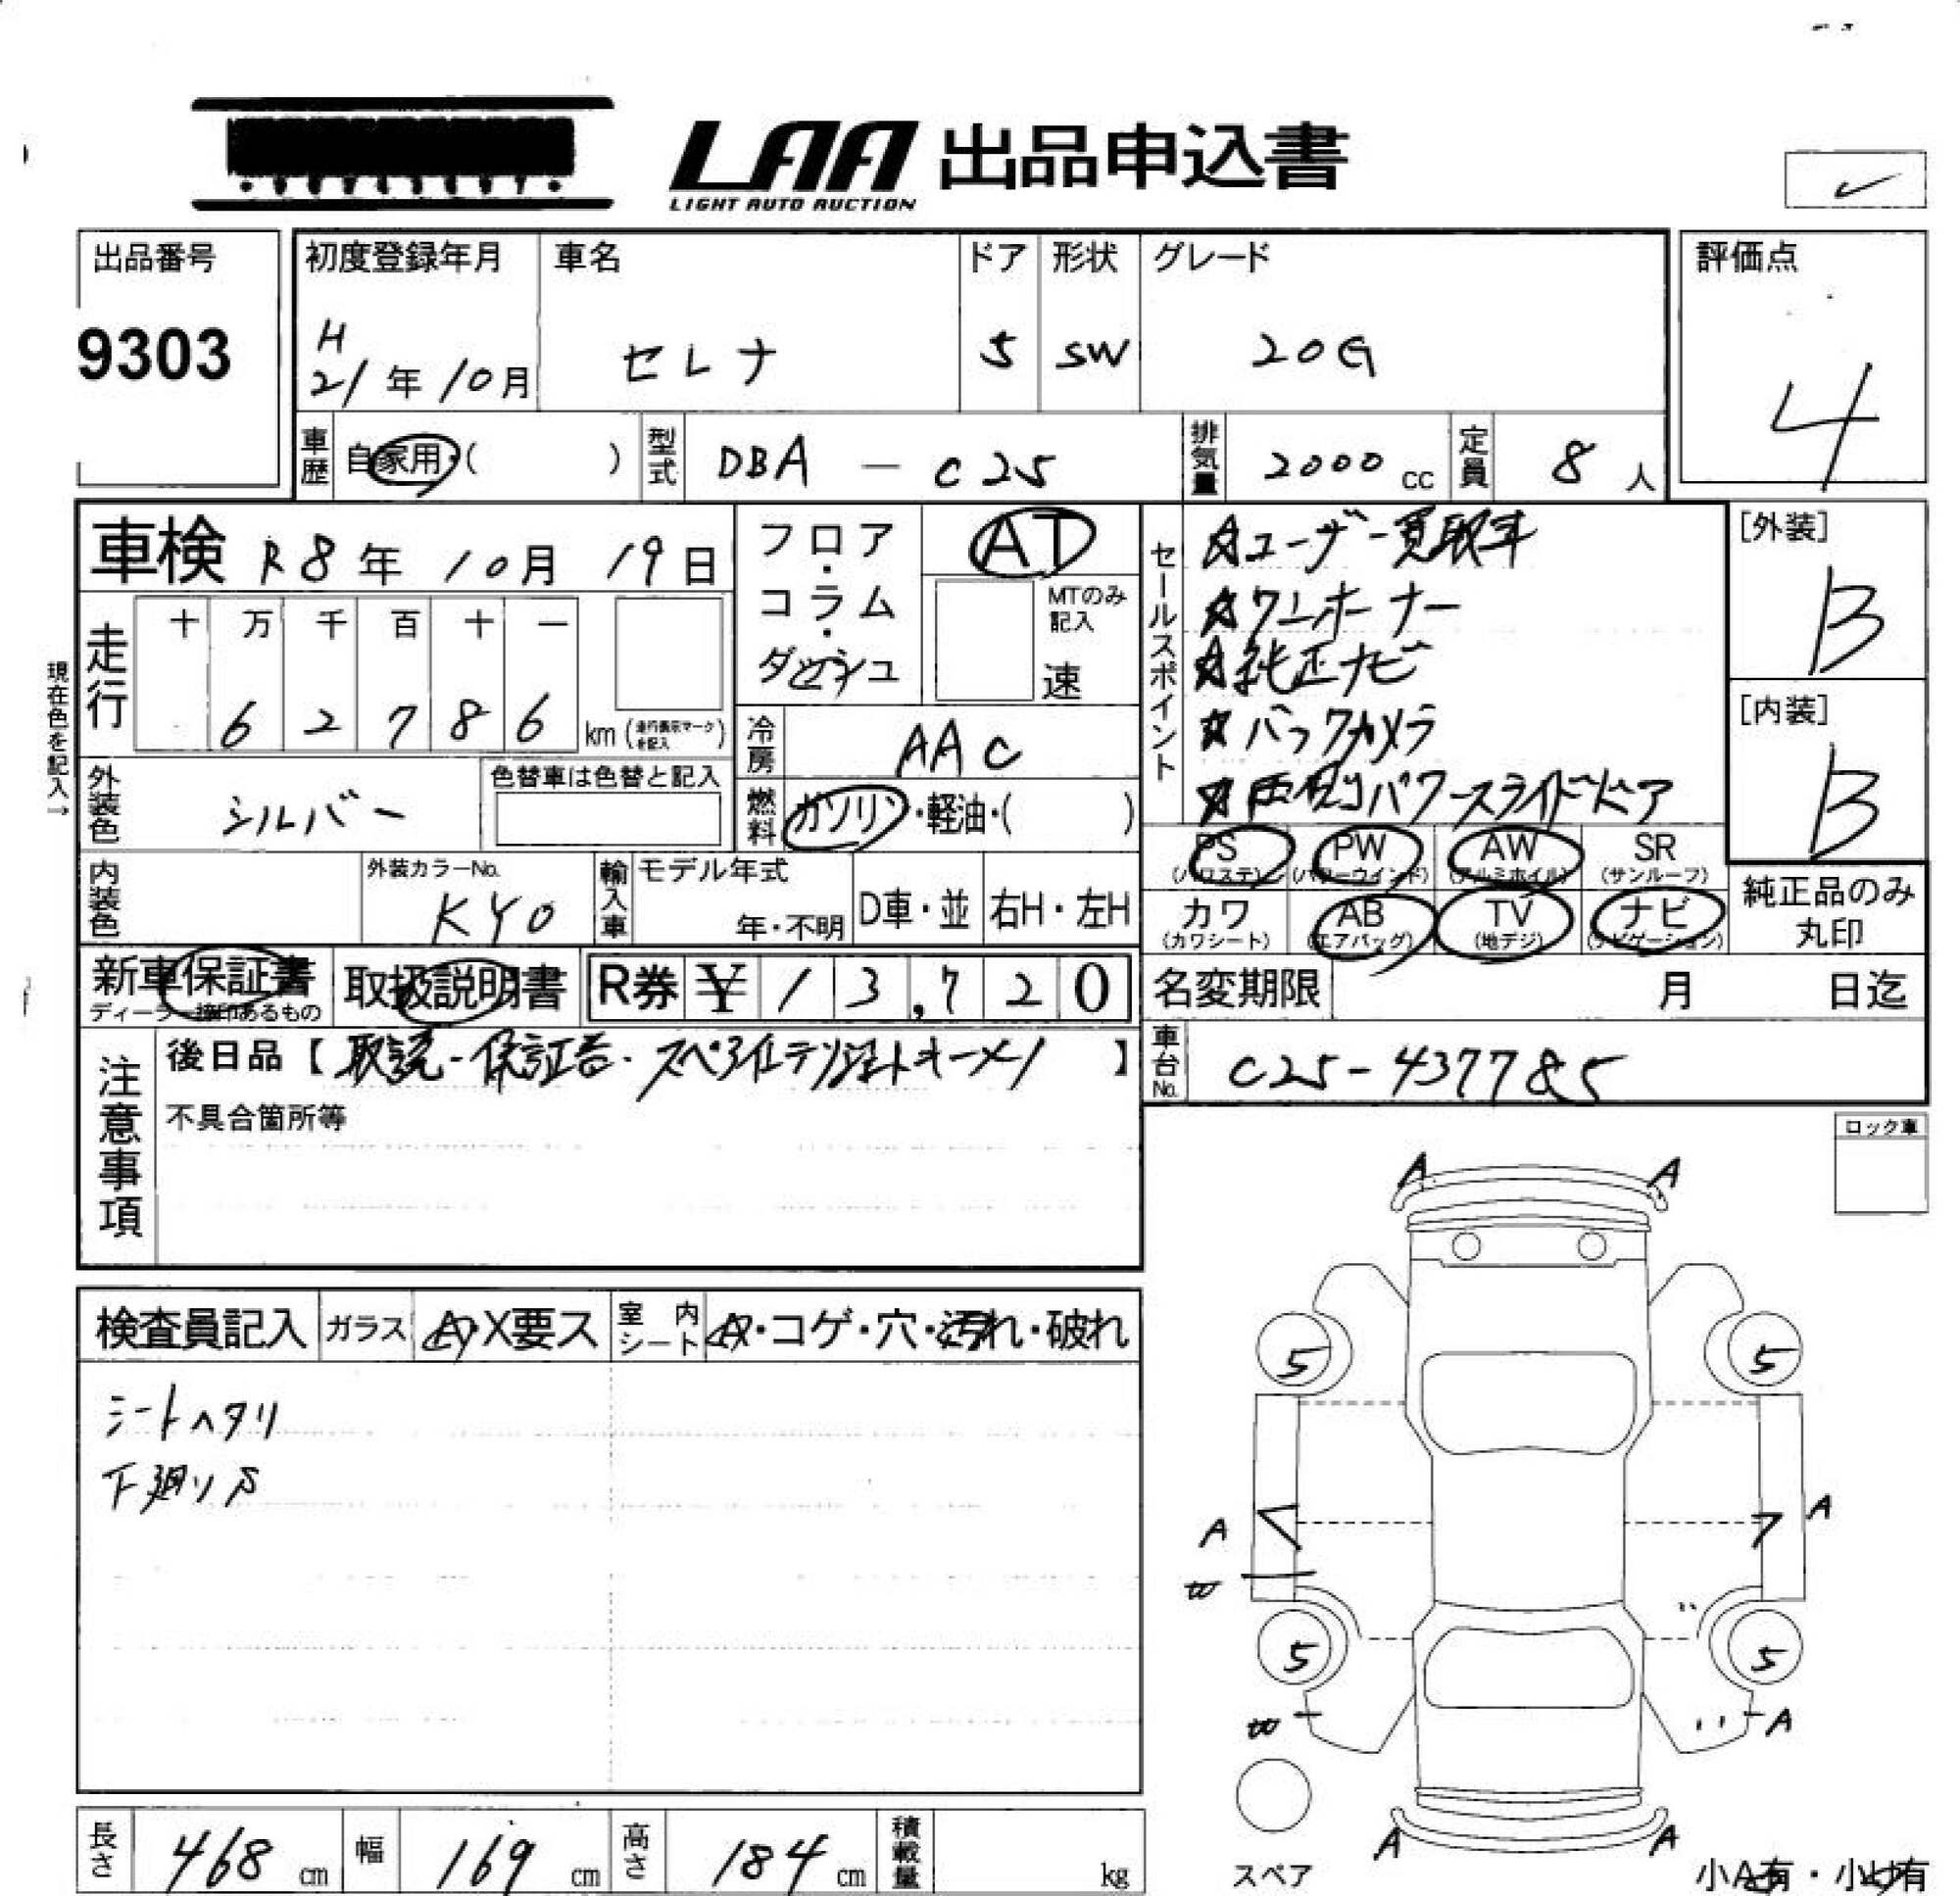 LAA 出品申込書
LIGHT AUTO AUCTION
出品番号
9303
初度登録年月
H
21年10月
車名
セレナ
ドア
5
形状
SW
グレード
20G
評価点
4
車歴 自家用・( )
型式 DBA-C25
排気量 2000cc
定員 8人
車検 R8年10月19日
フロア・コラム・ダッシュ
AT
MTのみ記入
速
セールスポイント
☆ユーザー買取車
☆ワンオーナー
☆純正ナビ
☆バックカメラ
☆両側パワースライドドア
[外装]
B
[内装]
B
現在色を記入→
走行
十 万 千 百 十 一
6 2 7 8 6 km (走行表示マークを記入)
冷房 AAC
外装色 シルバー
色替車は色替と記入
燃料 ガソリン・軽油・( )
PS PW AW SR
(パワステ) (パワーウインド) (アルミホイル) (サンルーフ)
カワ AB TV ナビ
(カワシート) (エアバッグ) (地デジ) (ナビゲーション)
純正品のみ丸印
内装色
外装カラーNo.
KY0
輸入車 モデル年式
年・不明
D車・並 右H・左H
新車保証書
ディーラー捺印あるもの
取扱説明書
R券 ¥13,720
名変期限 月 日迄
注意事項
後日品【取説・保証書・スペアインテリジェントキー・メノ】
不具合箇所等
車台No. C25-437785
ロック車
A A
検査員記入 ガラス A・X要ス 室内シート A・コゲ・穴・汚れ・破れ
シートヘタリ
下廻りS
5 5
A A
W
5 5
W A
A A
スペア
小A有・小U有
長さ 468cm 幅 169cm 高さ 184cm 積載量 kg